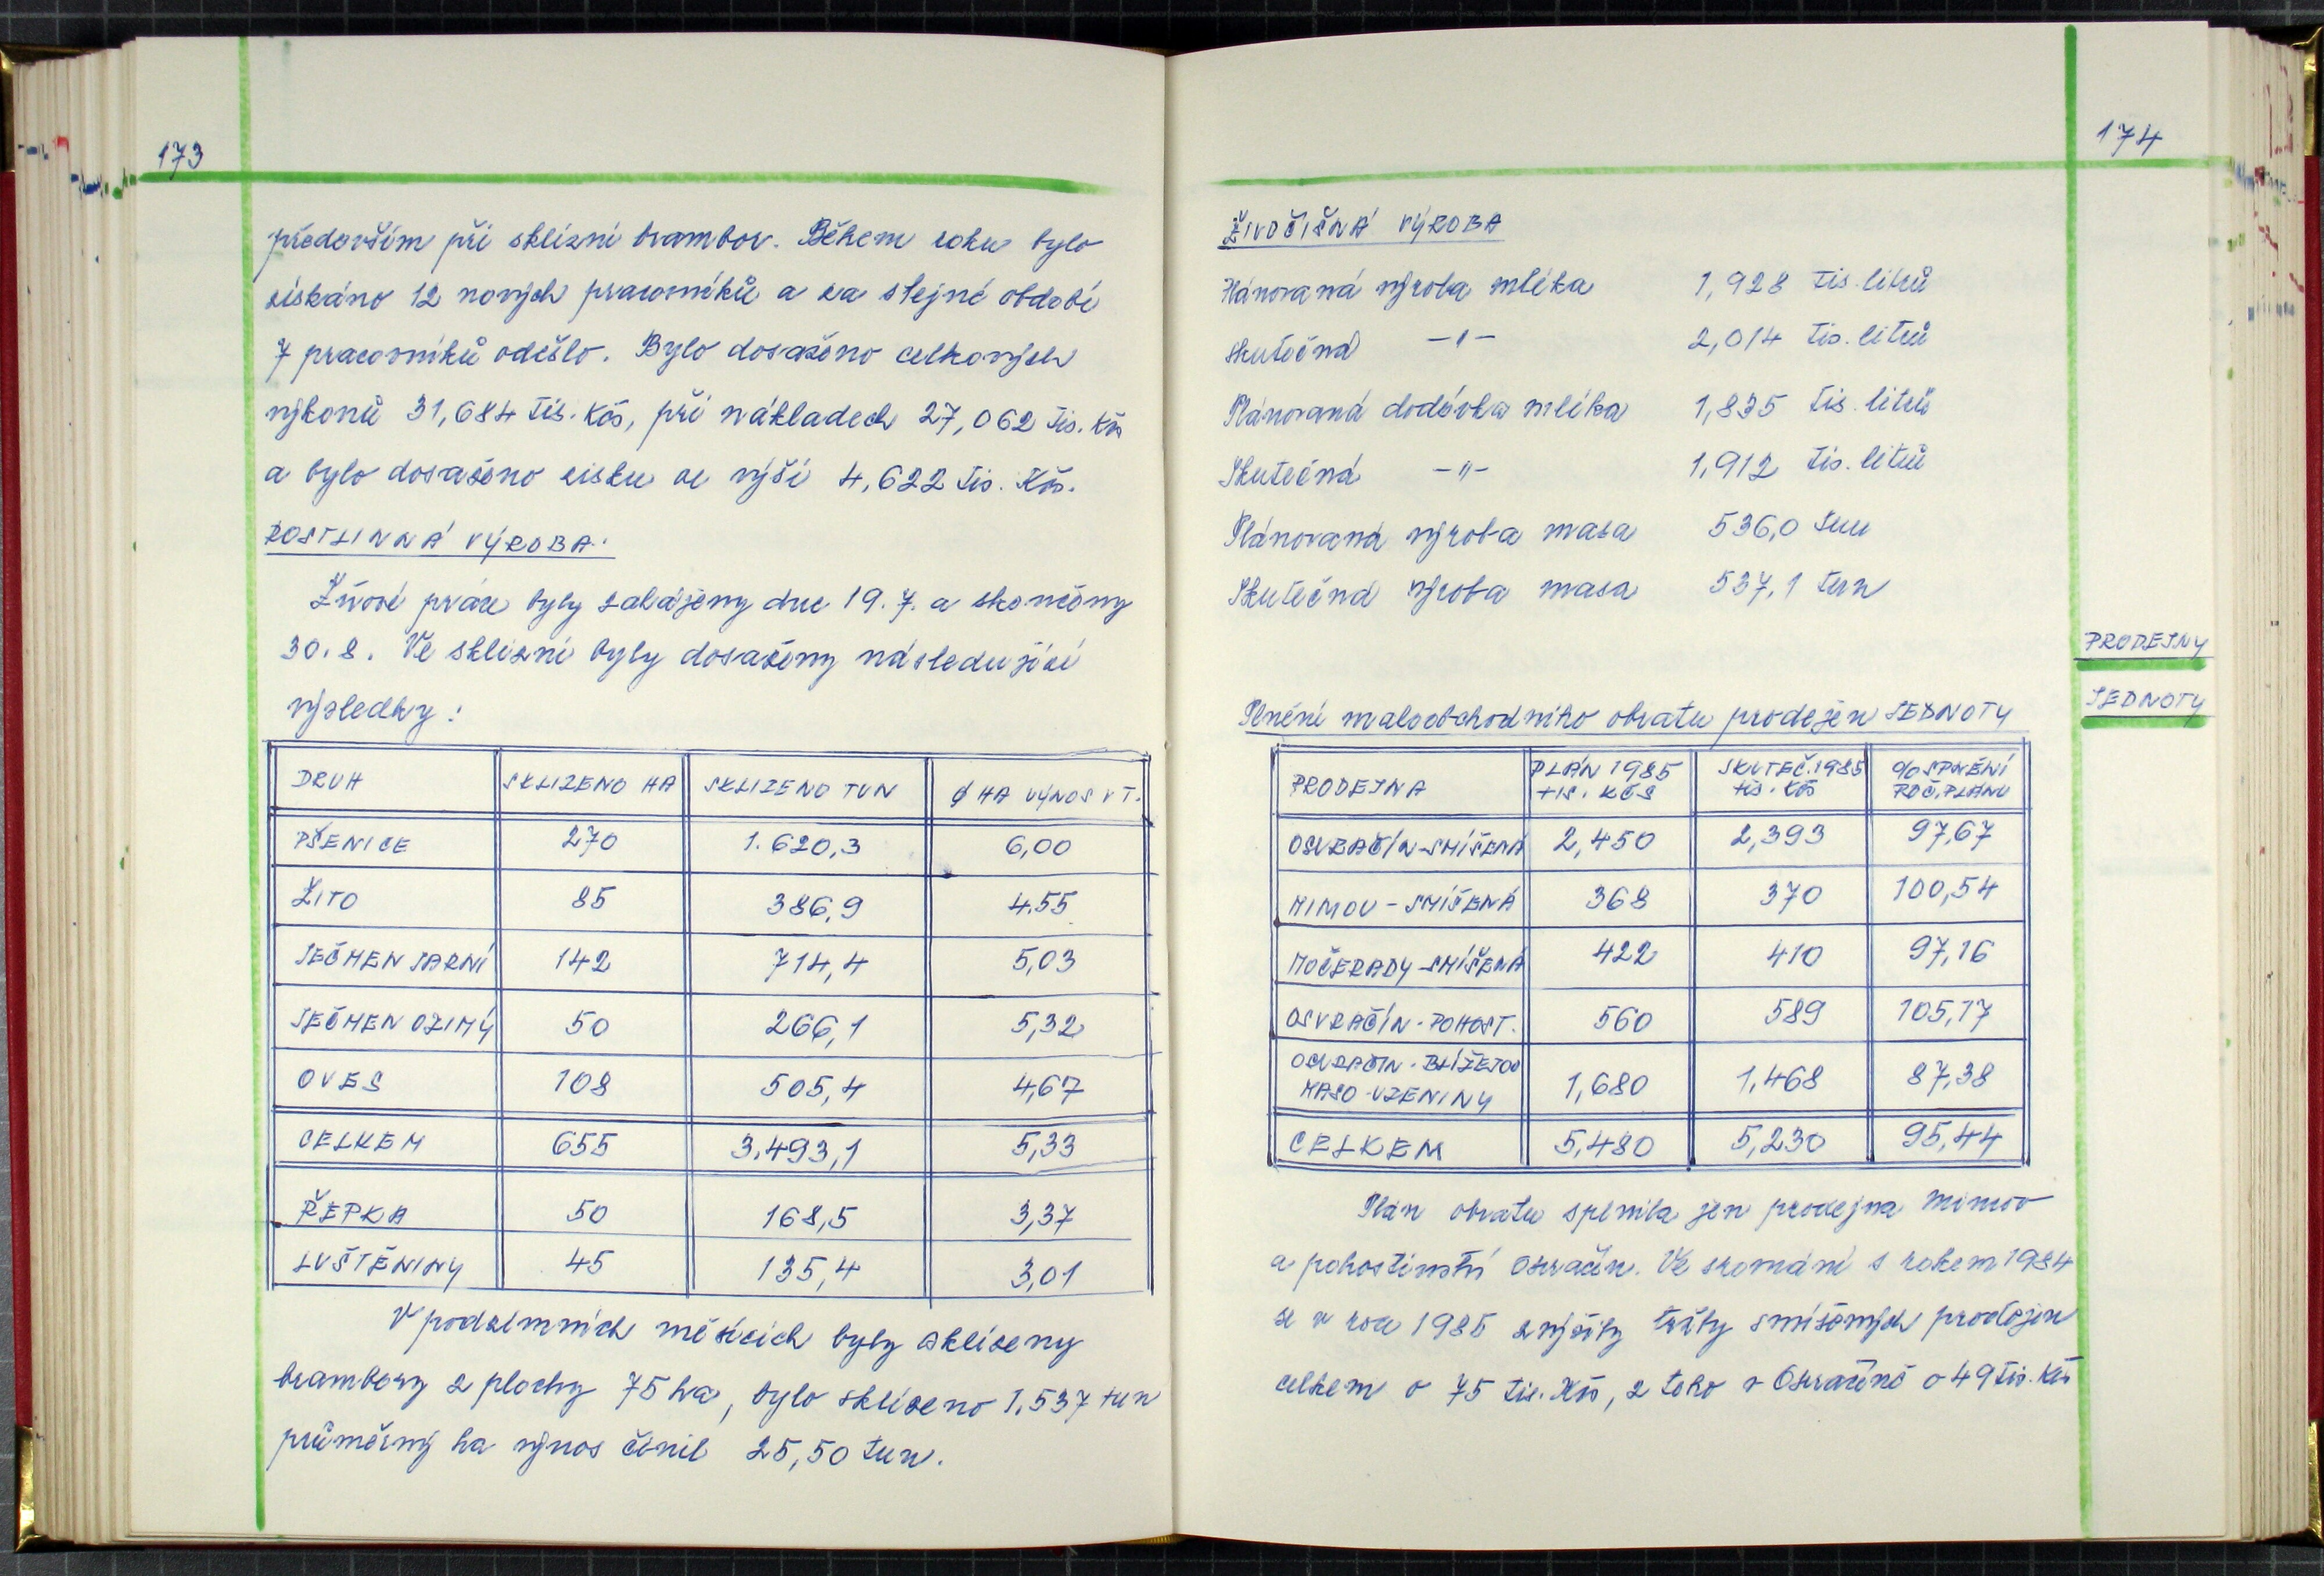 173
především při sklizni brambor. Během roku bylo
získáno 12 nových pracovníků a za stejné období
7 pracovníků odešlo. Bylo dosaženo celkových
výkonů 31,684 tis. Kčs, při nákladech 27,062 tis. Kčs
a bylo dosaženo zisku ve výši 4,622 tis. Kčs.
ROSTLINNÁ VÝROBA:
Žňové práce byly zahájeny dne 19.7. a skončeny
30.8. Ve sklizni byly dosaženy následující
výsledky:
DRUH SKLIZENO HA SKLIZENO TUN Ø HA VÝNOS V T.
PŠENICE 270 1.620,3 6,00
ŽITO 85 386,9 4.55
JEČMEN JARNÍ 142 714,4 5,03
JEČMEN OZIMÝ 50 266,1 5,32
OVES 108 505,4 4,67
CELKEM 655 3.493,1 5,33
ŘEPKA 50 168,5 3,37
LUŠTĚNINY 45 135,4 3,01
V podzimních měsících byly sklizeny
brambory z plochy 75 ha, bylo sklizeno 1.537 tun
průměrný ha výnos činil 25,50 tun.
174
ŽIVOČIŠNÁ VÝROBA
Plánovaná výroba mléka 1,928 tis. litrů
skutečná -"- 2,014 tis. litrů
Plánovaná dodávka mléka 1,835 tis. litrů
Skutečná -"- 1,912 tis. litrů
Plánovaná výroba masa 536,0 tun
Skutečná výroba masa 537,1 tun
PRODEJNY
JEDNOTY
Plnění maloobchodního obratu prodejen JEDNOTY
PRODEJNA PLÁN 1985 tis. KČS SKUTEČ. 1985 tis. Kčs % SPLNĚNÍ ROČ. PLÁNU
OSVRAČÍN-SMÍŠENÁ 2,450 2,393 97,67
MIMOV - SMÍŠENÁ 368 370 100,54
MOČERADY-SMÍŠENÁ 422 410 97,16
OSVRAČÍN - POHOST. 560 589 105,17
OSVRAČÍN - BLÍŽEJOV
MASO-UZENINY 1,680 1,468 87,38
CELKEM 5,480 5,230 95,44
Plán obratu splnila jen prodejna Mimov
a pohostinství Osvračín. Ve srovnání s rokem 1984
se v roce 1985 zvýšily tržby smíšených prodejen
celkem o 75 tis. Kčs, z toho v Osvračíně o 49 tis. Kčs